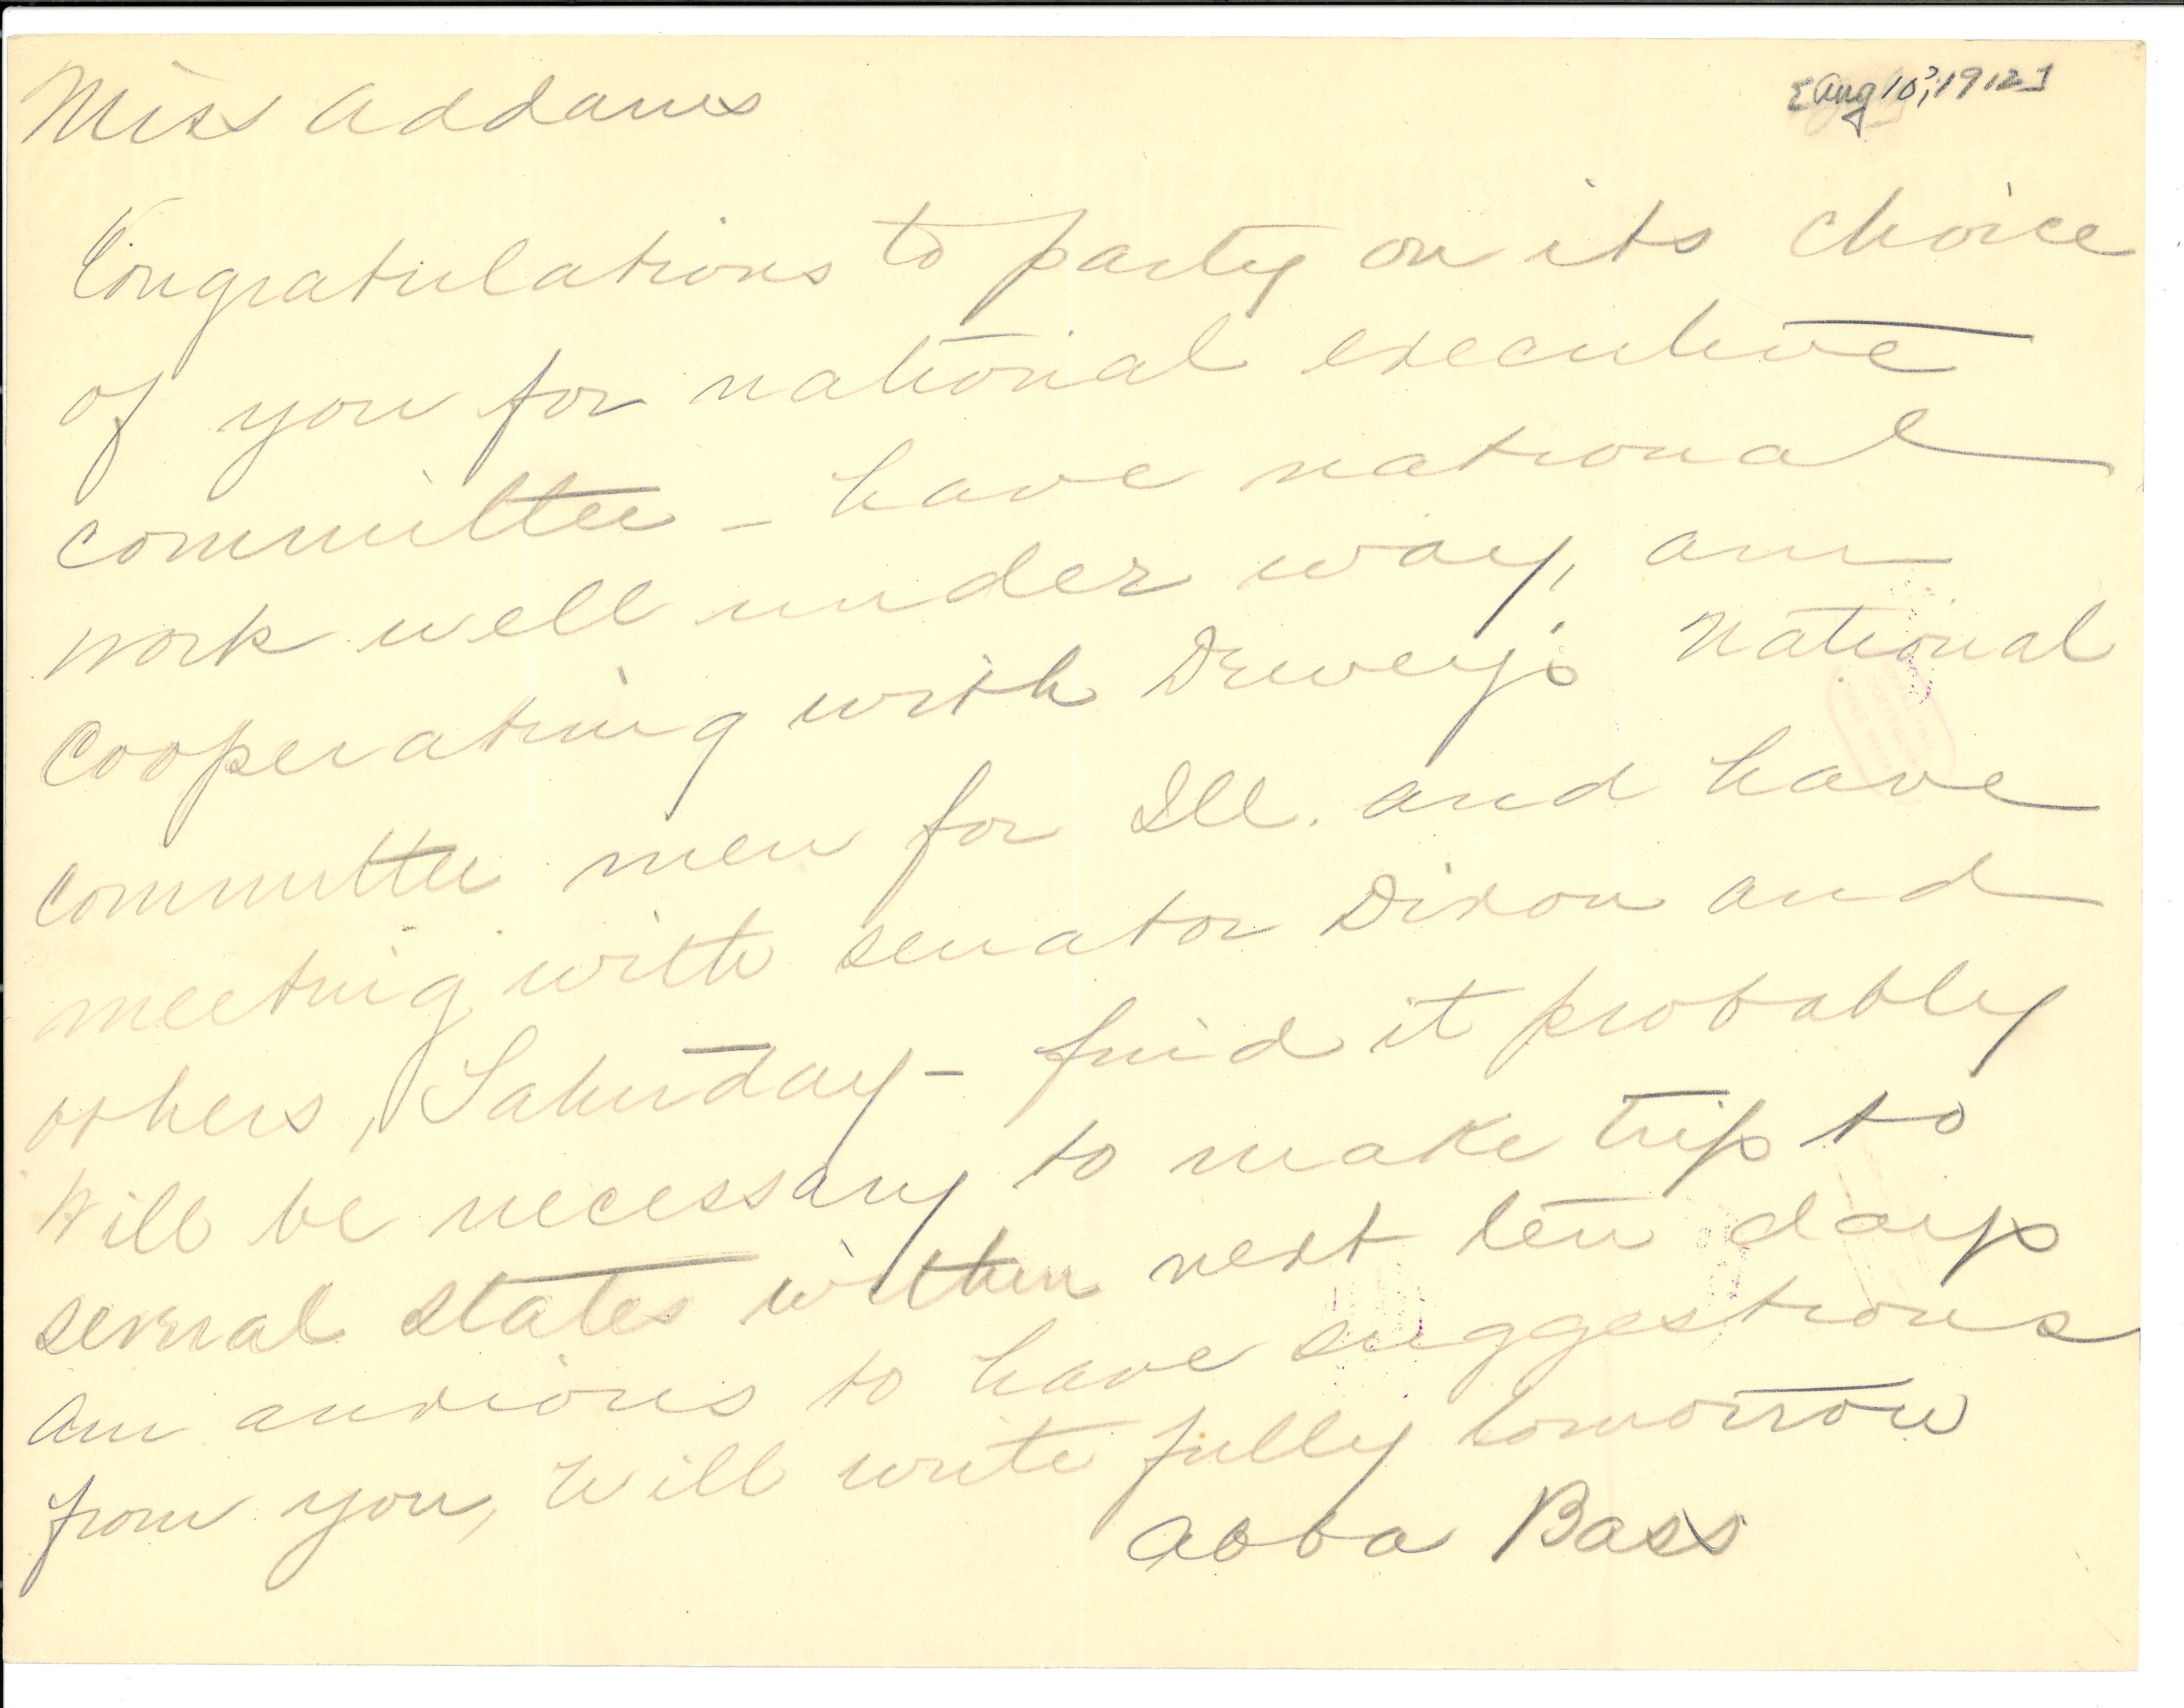 [Aug 10?, 1912]
Miss Addams
Congratulations to party on its choice
of you for national executive
committee - have national
work well under way, am
cooperating with Dewey's National
committee men for Ill. and have
meeting with senator Dixon and
others, Saturday - find it probably
will be necessary to make trip to
several states within next ten days
am anxious to have suggestions
from you, will write fully tomorrow
Abba Bass